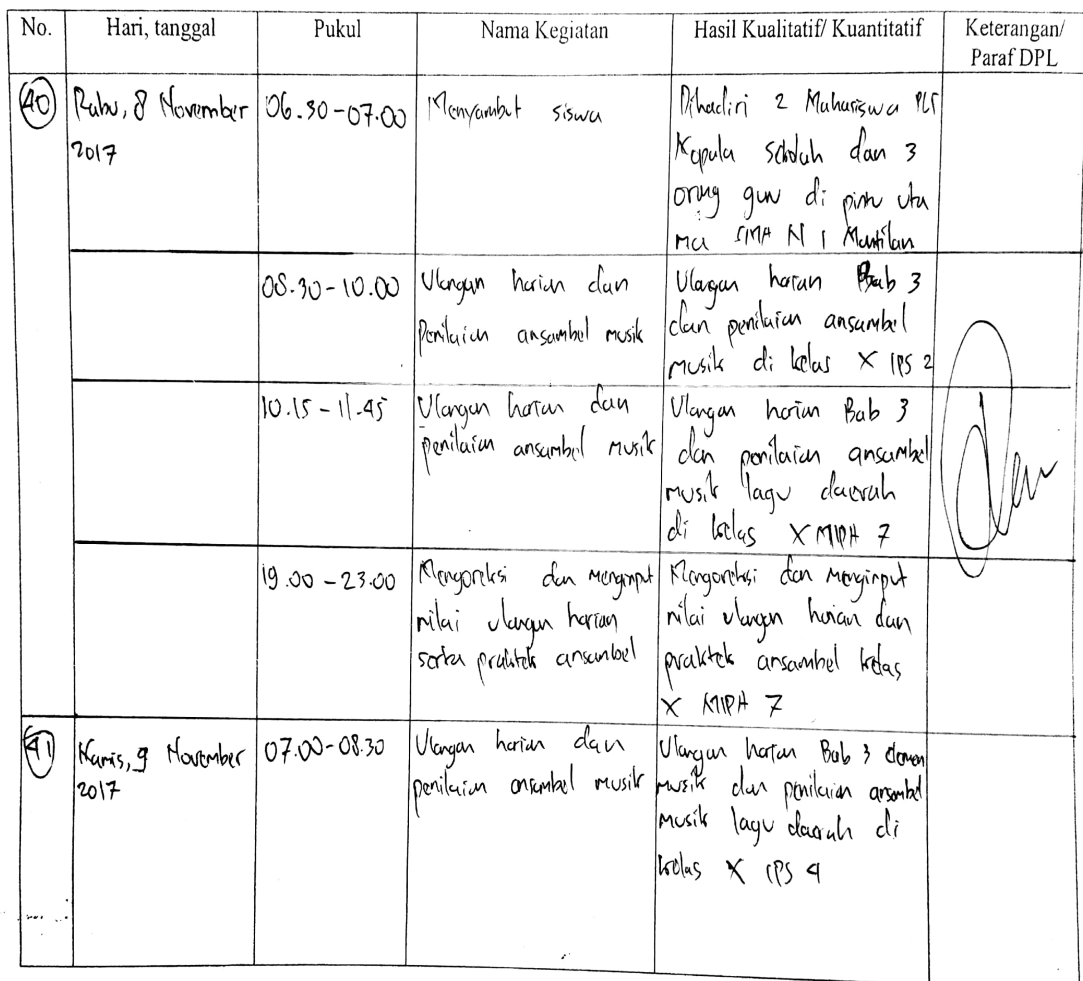 No.
Hari, tanggal
Pukul
Nama Kegiatan
Hasil Kualitatif/ Kuantitatif
Keterangan/
Paraf DPL
40
Rabu, 8 November
2017
06.30-07.00
Menyambut siswa
Dihadiri 2 Mahasiswa PLT
Kepala sekolah dan 3
orang guru di pintu uta
ma SMA N 1 Muntilan
08.30-10.00
Ulangan harian dan
Penilaian ansambel musik
Ulangan harian Bab 3
dan penilaian ansambel
musik di kelas X IPS 2
10.15-11.45
Ulangan harian dan
penilaian ansambel musik
Ulangan harian Bab 3
dan penilaian ansambel
musik lagu daerah
di kelas X MIPA 7
19.00-23.00
Mengoreksi dan Menginput
nilai ulangan harian
serta praktek ansambel
Mengoreksi dan Menginput
nilai ulangan harian dan
praktek ansambel kelas
X MIPA 7
41
Kamis, 9 November
2017
07.00-08.30
Ulangan harian dan
penilaian ansambel musik
Ulangan harian Bab 3
musik dan penilaian ansambel
musik lagu daerah di
kelas X IPS 4